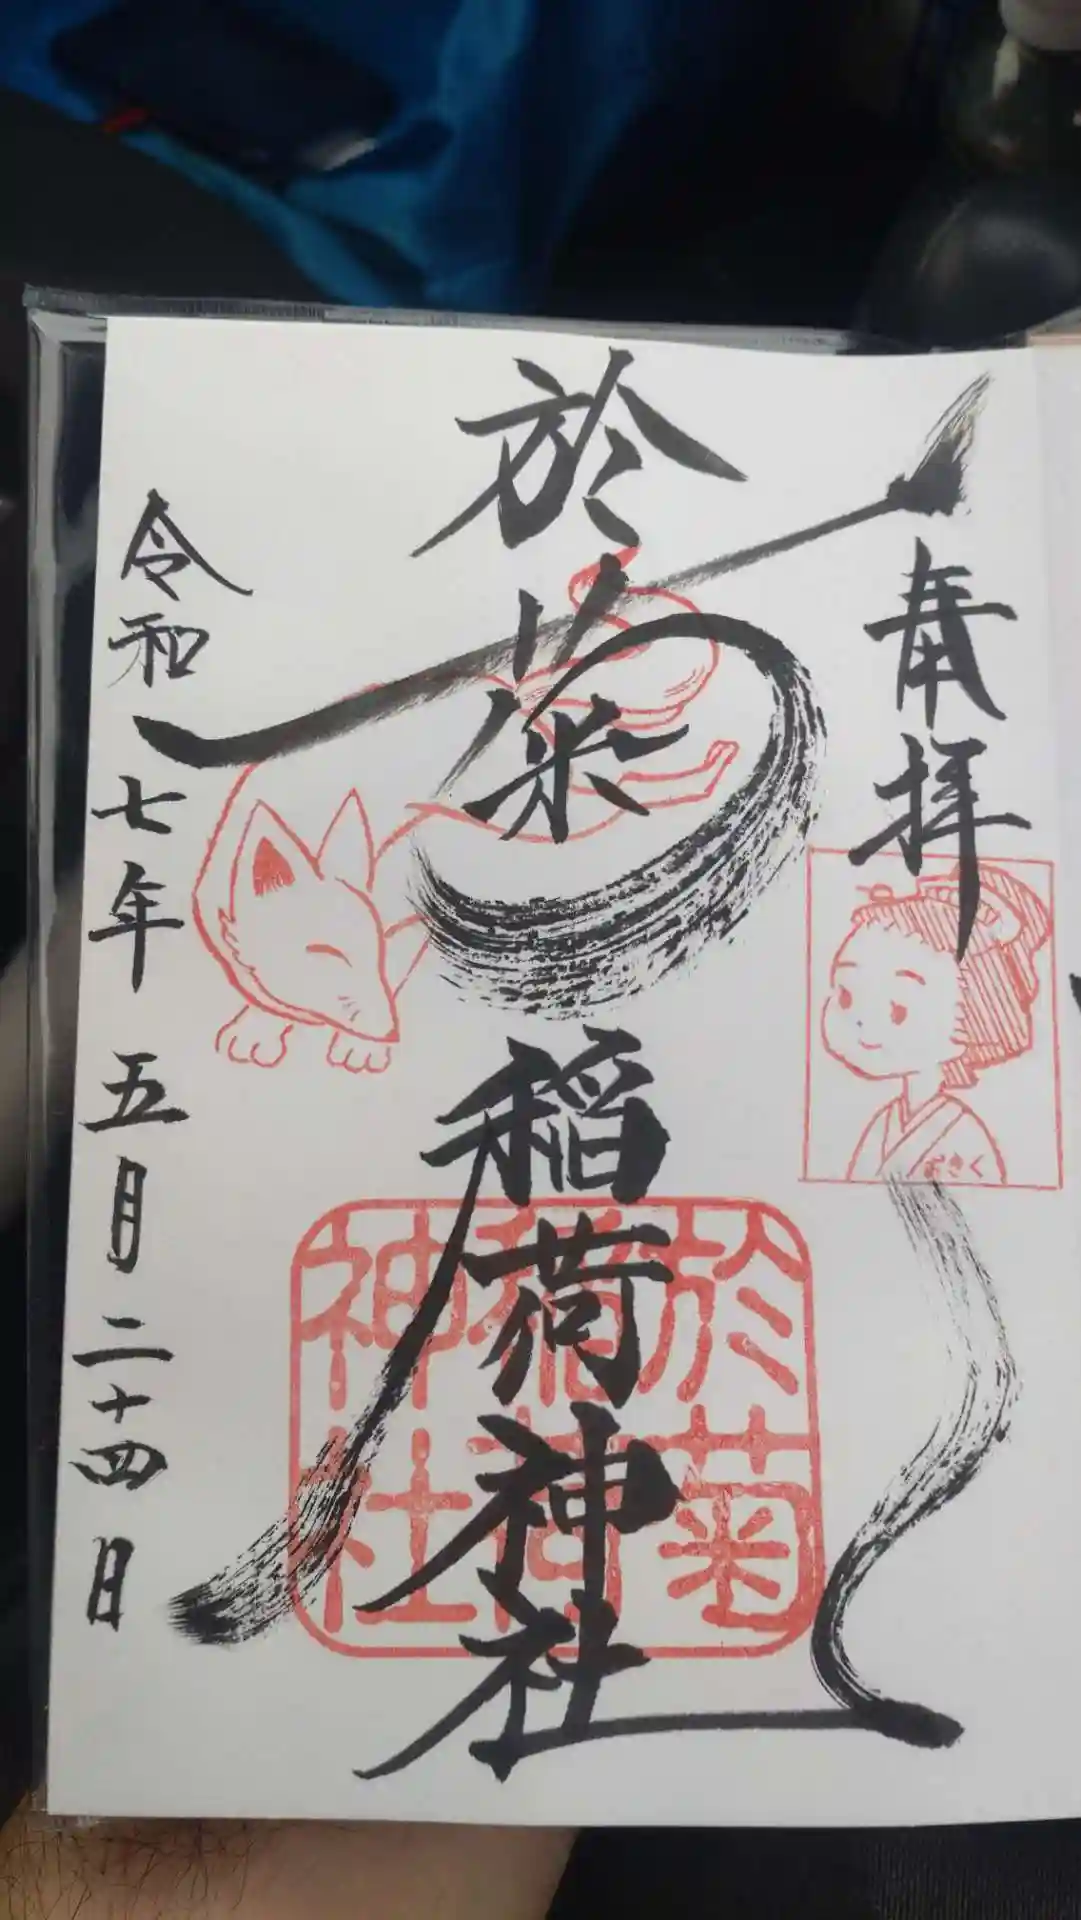 奉拝
於菊稲荷神社
令和七年五月二十四日
おきく
於菊
稲荷
神社